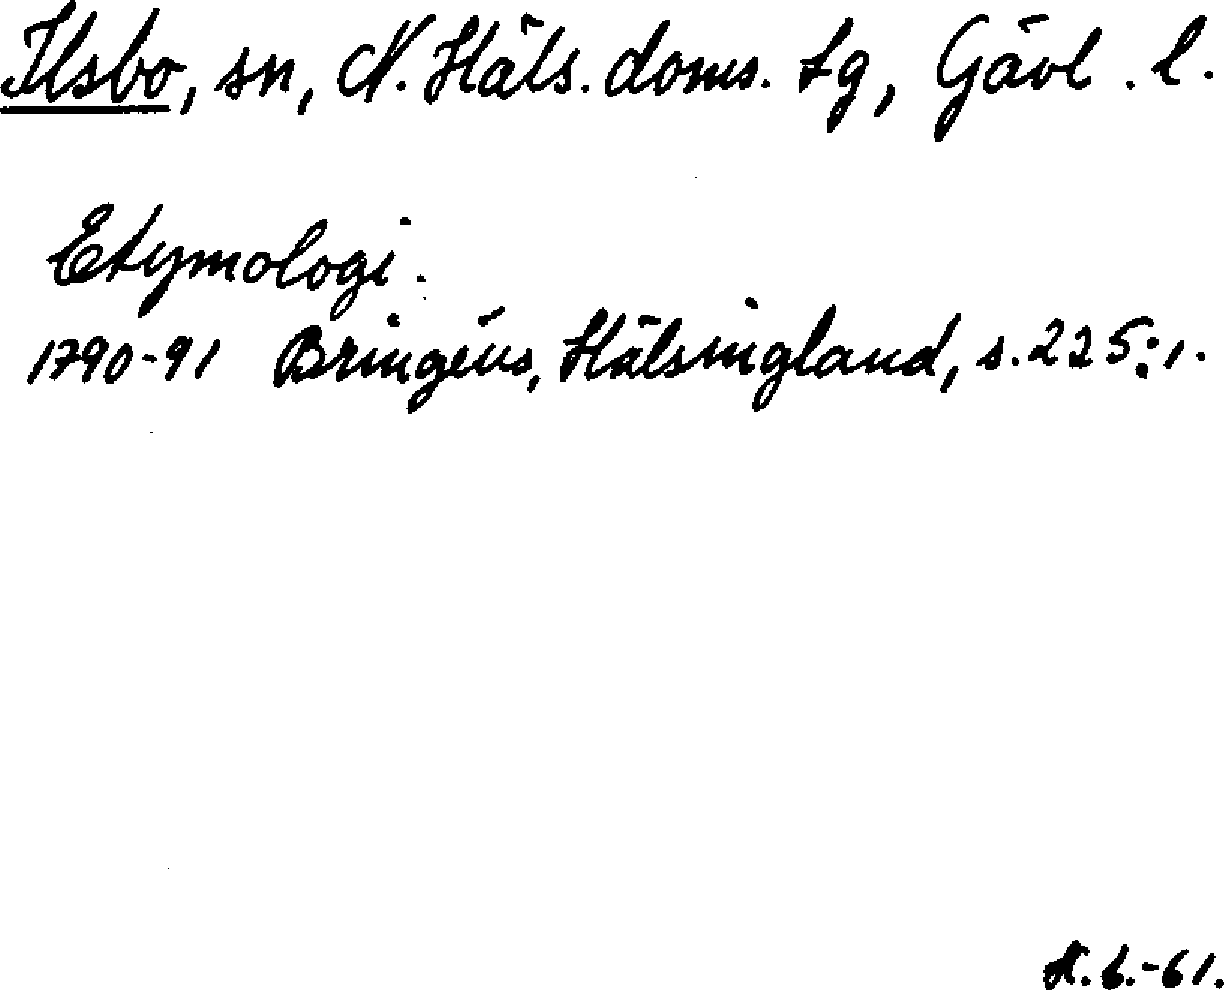 Ilsbo, sn, N. Häls. doms. tg, Gävl. l.
Etymologi.
1790-91 Bringéus, Hälsingland, s. 225:1.
H. b.-61.